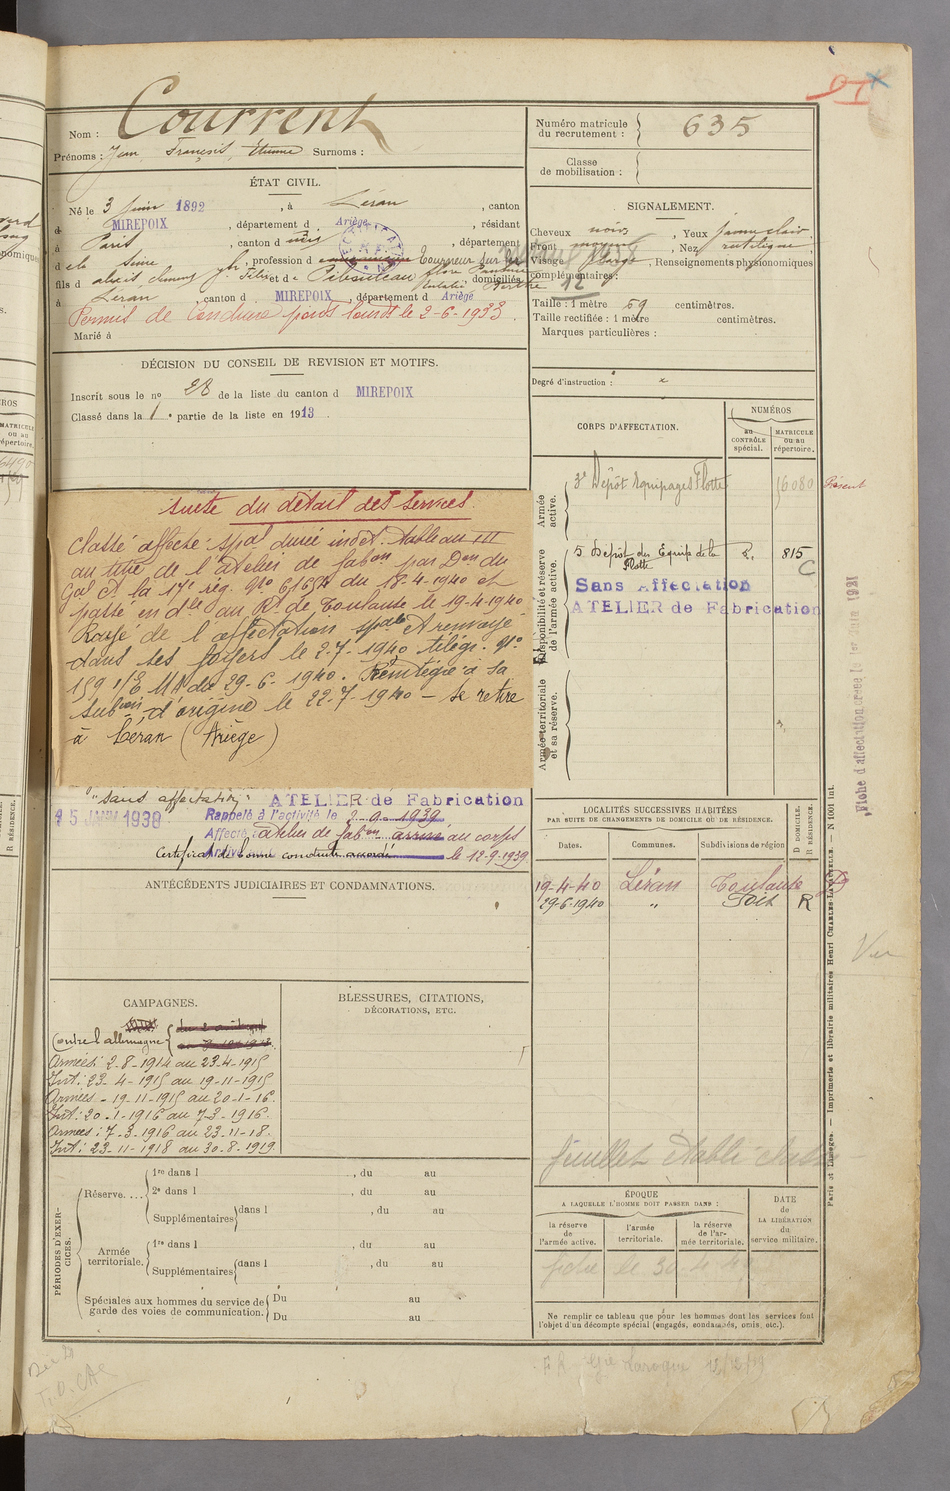 Nom : Courrent
Prénoms : Jean, François, Etienne Surnoms :
ÉTAT CIVIL.
Né le 3 Juin 1892, à Léran, canton
d MIREPOIX, département d Ariège, résidant
à Paris, canton d, département
d la Seine, profession d Tourneur sur
fils d et d Pibouleau
domiciliés
à Léran, canton d MIREPOIX, département d Ariège
Permis de Conduire poids lourds le 2-6-1933.
Marié à
DÉCISION DU CONSEIL DE REVISION ET MOTIFS.
Inscrit sous le no 28 de la liste du canton d MIREPOIX
Classé dans la 1e partie de la liste en 1913.
suite du détail des Services
Classé affecté spal durée indet. tableau III
au titre de l'atelier de fabon par Don du
Gal Ct la 17e rég. No 6/654 du 18-4-1940 et
passé en dle au Rt de Toulouse le 19-4-1940
Rayé de l'affectation spale et renvoyé
dans ses foyers le 2-7-1940 télégr. No
159 1/E. M du 29-6-1940. Réintégré à sa
subon d'origine le 22-7-1940 - se retire
à Léran (Ariège)
"sans affectation" ATELIER de Fabrication
15 JANV 1938 Rappelé à l'activité le 2-9-1939
Affecté : atelier de fabon arrivé au corps
Certificat de bonne conduite accordé le 12-9-1939
ANTÉCÉDENTS JUDICIAIRES ET CONDAMNATIONS.
CAMPAGNES.
Contre l'allemagne
Armées : 2-8-1914 au 23-4-1915
Int : 23-4-1915 au 19-11-1915
Armées - 19-11-1915 au 20-1-16
Int : 20-1-1916 au 7-3-1916.
Armées : 7-3-1916 au 23-11-18.
Int : 23-11-1918 au 30-8-1919.
BLESSURES, CITATIONS,
DÉCORATIONS, ETC.
PÉRIODES D'EXERCICES.
Réserve....
1re dans l, du au
2e dans l, du au
Supplémentaires dans l, du au
Armée
territoriale.
1re dans l, du au
Supplémentaires dans l, du au
Spéciales aux hommes du service de
garde des voies de communication.
Du au
Du au
Numéro matricule
du recrutement : 635
Classe
de mobilisation :
SIGNALEMENT.
Cheveux noirs, Yeux jaune clair
Front moyen, Nez rectiligne
Visage large, Renseignements physionomiques
complémentaires :
12
Taille : 1 mètre 69 centimètres.
Taille rectifiée : 1 mètre centimètres.
Marques particulières :
Degré d'instruction :
CORPS D'AFFECTATION.
NUMÉROS
au
CONTRÔLE
spécial.
MATRICULE
ou au
répertoire.
Armée
active.
3e Dépôt Equipages Flotte 16080
Disponibilité et réserve
de l'armée active.
5 Dépôt des Equip de la
Flotte 815
C
Sans Affectation
ATELIER de Fabrication
Armée territoriale
et sa réserve.
LOCALITÉS SUCCESSIVES HABITÉES
PAR SUITE DE CHANGEMENTS DE DOMICILE OU DE RÉSIDENCE.
Dates. Communes. Subdivisions de région
D DOMICILE.
R RÉSIDENCE.
19-4-40 Léran Toulouse
29-6-1940 " Foix R
feuillet établi
ÉPOQUE
A LAQUELLE L'HOMME DOIT PASSER DANS :
la réserve
de
l'armée active.
l'armée
territoriale.
la réserve
de l'armée territoriale.
DATE
de
LA LIBÉRATION
du
service militaire.
fiche le 30-4-42
Ne remplir ce tableau que pour les hommes dont les services font
l'objet d'un décompte spécial (engagés, condamnés, omis, etc.).
Fiche d'affectation créée le 1er Juin 1931
Paris et Limoges. — Imprimerie et librairie militaires Henri CHARLES-LAVAUZELLE. — N 1001 Int.